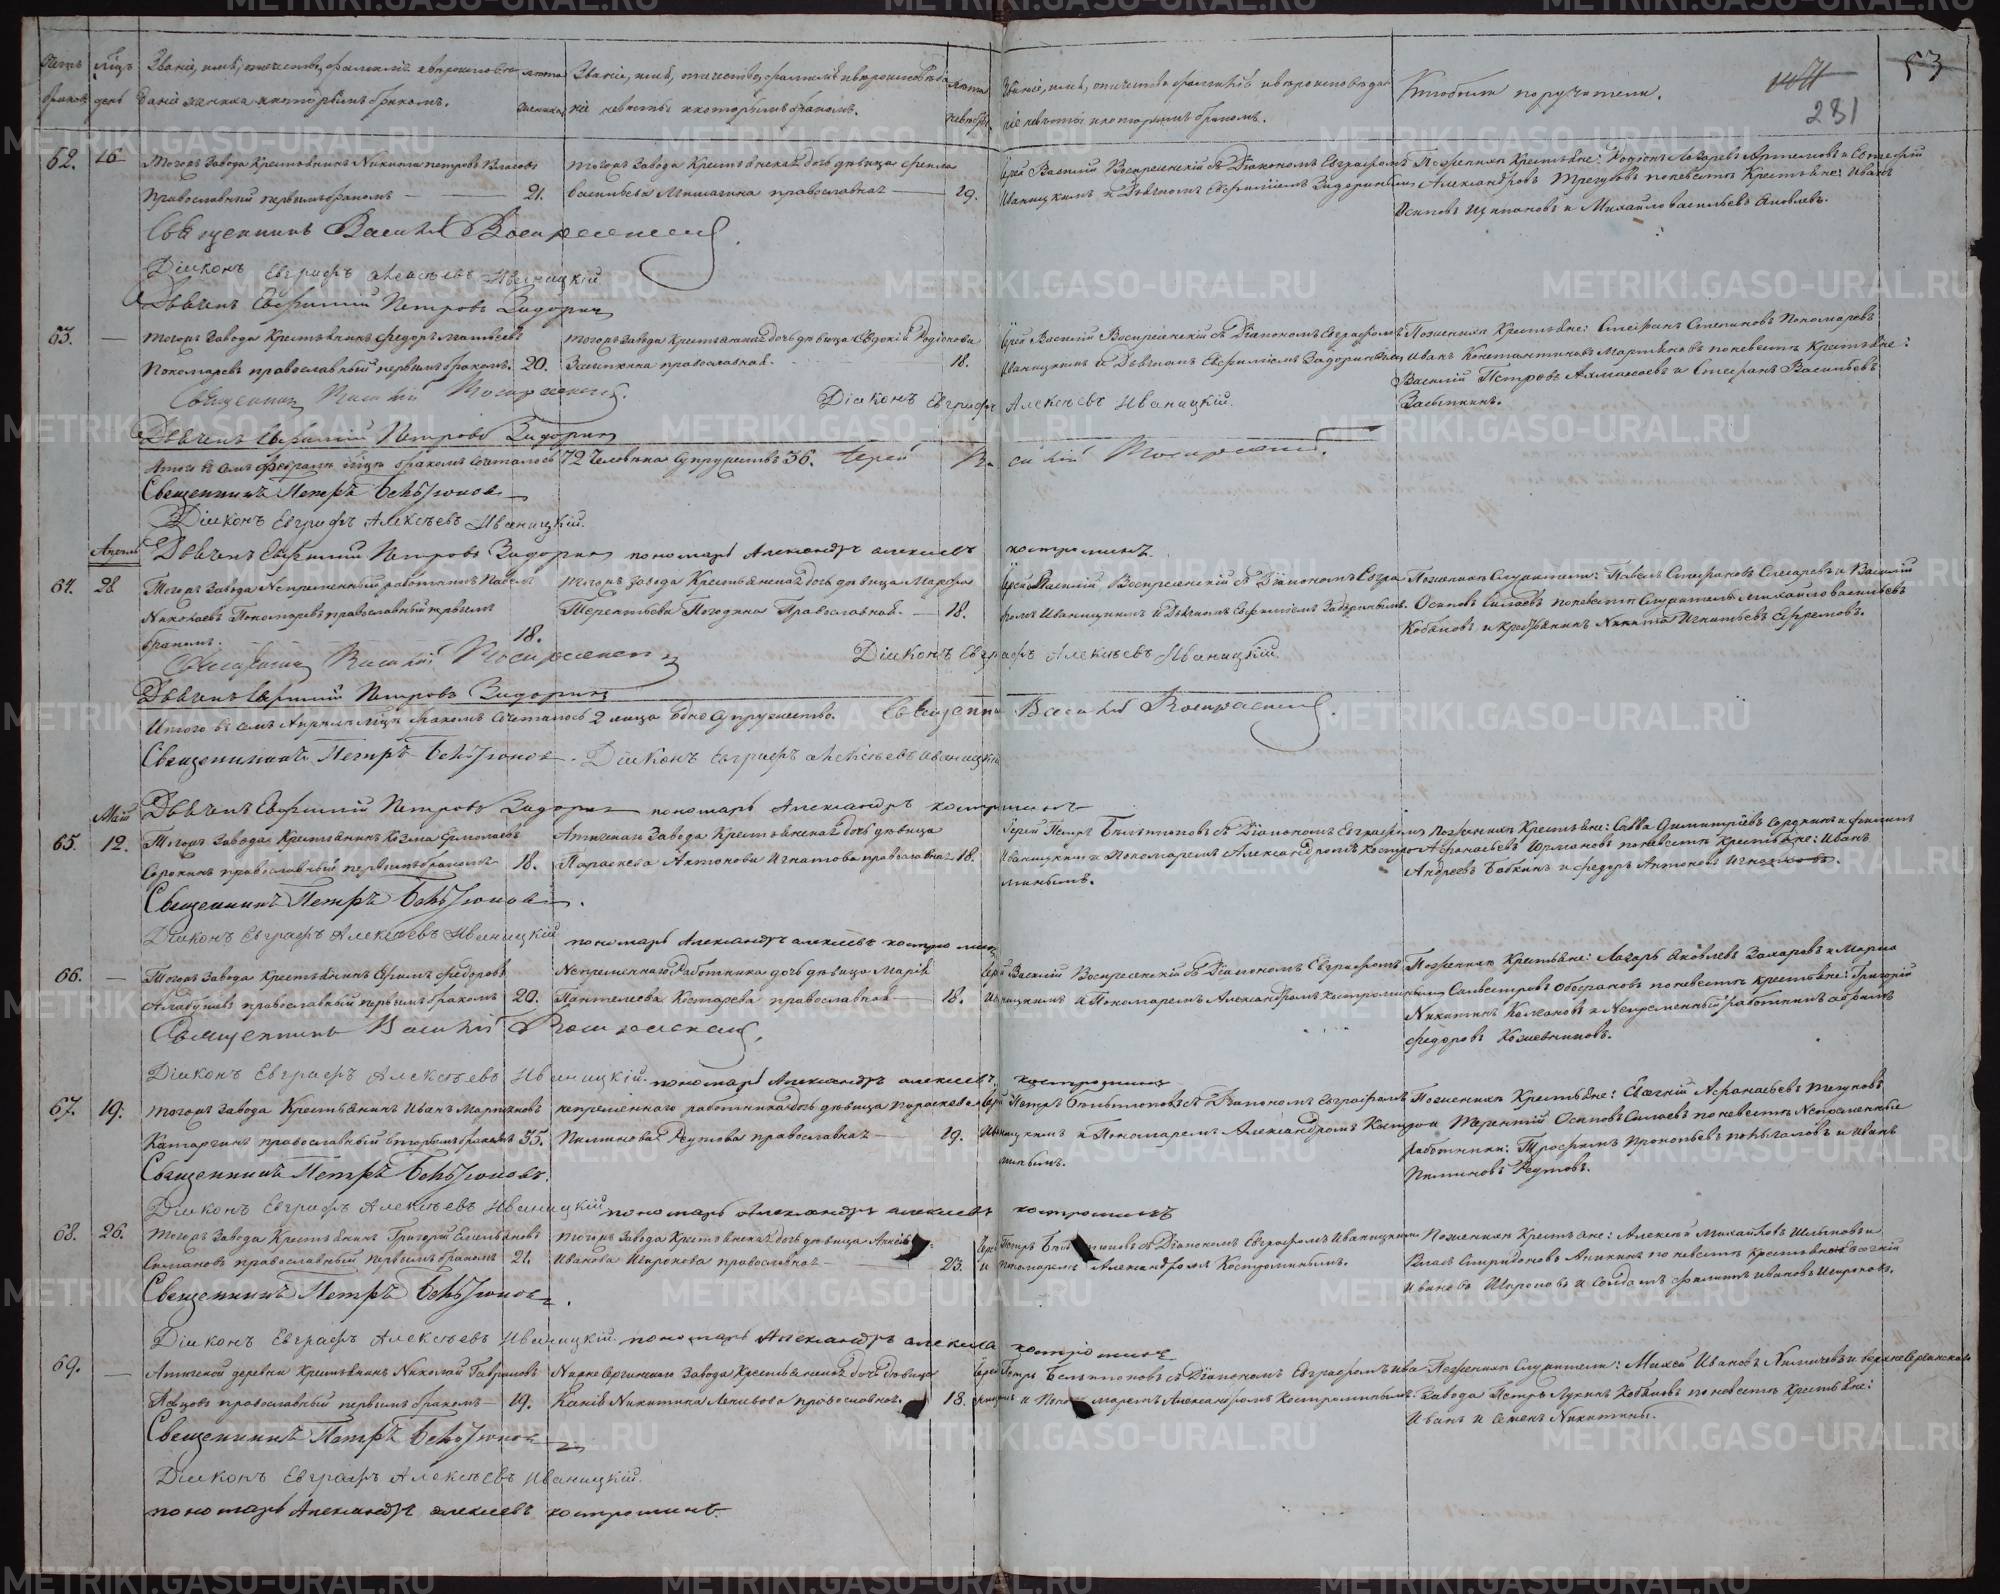 Счетъ браковъ.
Мѣцъ день
Званіе, имя, отчество, фамилія и вѣроисповѣ-
даніе жениха и которымъ бракомъ.
Лѣта жениха
Званіе, имя, отчество, фамилія и вѣроисповѣда
ніе невѣсты и которымъ бракомъ.
Лѣта невѣсты.
Кто были поручители.
281
53
62. 16
Тогожъ завода Крестьянинъ Никита Петровъ Власовъ
Православный первымъ бракомъ 21.
Тогожъ завода Крестьянская дочь дѣвица Фекла
Васильева Мишагина православная 19.
Іерей Василій Воскресенскій съ Діакономъ Евграфомъ
Иваницкимъ и Дьячкомъ Евфиміемъ Задоринымъ
По женихѣ Крестьяне: Родіонъ Лазаревъ Артемовъ и Евстафій
Александровъ Трегубовъ по невѣстѣ Крестьяне: Иванъ
Осиповъ Щипановъ и Михайло Васильевъ Яковлевъ.
Священникъ Василій Воскресенскій.
Діаконъ Евграфъ Алексѣевъ Иваницкій
Дьячекъ Евфимій Петровъ Задоринъ
63. —
Тогожъ завода Крестьянинъ Федоръ Матвѣевъ
Пономаревъ православный первымъ бракомъ. 20.
Тогожъ завода Крестьянская дочь дѣвица Евдокія Родіонова
Засыпкина православная. 18.
Іерей Василій Воскресенскій съ Діакономъ Евграфомъ
Иваницкимъ и Дьячкомъ Евфиміемъ Задоринымъ
По женихѣ Крестьяне: Стефанъ Степановъ Пономаревъ
Иванъ Константиновъ Мартьяновъ по невѣстѣ Крестьяне:
Василій Петровъ и Стефанъ Васильевъ
Засыпкинъ.
Священникъ Василій Воскресенскій.
Діаконъ Евграфъ Алексѣевъ Иваницкій.
Дьячекъ Евфимій Петровъ Задоринъ
Итого въ семъ Февралѣ мѣцѣ бракомъ сочеталось 72 человѣка супружествъ 36. Іерей Василій Воскресенскій.
Священникъ Петръ Бѣльтюковъ
Діаконъ Евграфъ Алексѣевъ Иваницкій.
Дьячекъ Евфимій Петровъ Задоринъ пономарь Александръ Алексѣевъ Костроминъ.
Апрель
64. 28
Тогожъ завода Непременный работникъ Павелъ
Николаевъ Пономаревъ православный первымъ
бракомъ. 18.
Тогожъ завода Крестьянская дочь дѣвица Марфа
Терентьева Погодина Православная. 18.
Іерей Василій Воскресенскій съ Діакономъ Евгра
фомъ Иваницкимъ и Дьячкомъ Евфиміемъ Задоринымъ.
По женихѣ Служители: Павелъ Стефановъ Слесаревъ и Василій
Осиповъ Силаевъ по невѣстѣ Служитель Михайло Васильевъ
Кобяковъ и Крестьянинъ Никита Игнатьевъ Ефремовъ.
Священникъ Василій Воскресенскій
Діаконъ Евграфъ Алексѣевъ Иваницкій
Дьячекъ Евфимій Петровъ Задоринъ
Итого въ семъ Апрѣлѣ мѣцѣ бракомъ сочеталось 2 лица одно супружество. Священникъ Василій Воскресенскій.
Священникъ Петръ Бѣльтюковъ. Діаконъ Евграфъ Алексѣевъ Иваницкій
Дьячекъ Евфимій Петровъ Задоринъ пономарь Александръ Костроминъ
Май
65. 12.
Тогожъ завода Крестьянинъ Козма Ермолаевъ
Сорокинъ православный первымъ бракомъ 18.
Атигскаго завода Крестьянская дочь дѣвица
Параскева Антонова Игнатова православная 18.
Іерей Петръ Бѣльтюковъ съ Діакономъ Евграфомъ
Иваницкимъ и Пономаремъ Александромъ Костро
минымъ.
По женихѣ Крестьяне: Савва Димитріевъ Сорокинъ и Филипъ
Афонасьевъ по невѣстѣ Крестьяне: Иванъ
Андреевъ Бабкинъ и Федоръ Антоновъ Игнатовъ.
Священникъ Петръ Бѣльтюковъ.
Діаконъ Евграфъ Алексѣевъ Иваницкій пономарь Александръ Алексѣевъ Костроминъ
66. —
Тогожъ завода Крестьянинъ Ефимъ Федоровъ
Алабушевъ православный первымъ бракомъ 20.
Непременнаго Работника дочь дѣвица Марія
Пантелеева Костарева православная 18.
Іерей Василій Воскресенскій съ Діакономъ Евграфомъ
Иваницкимъ и Пономаремъ Александромъ Костроминымъ
По женихѣ Крестьяне: Лазарь Яковлевъ Захаровъ и Марко
Сильвестровъ по невѣстѣ Крестьяне: Григорій
Никитинъ и Непременный работникъ Абрамъ
Федоровъ Кожевниковъ.
Священникъ Василій Воскресенскій.
Діаконъ Евграфъ Алексѣевъ Иваницкій. пономарь Александръ Алексѣевъ Костроминъ
67. 19.
Тогожъ завода Крестьянинъ Иванъ Мартиновъ
Катаргинъ православный вторымъ бракомъ 35.
непременнаго работника дочь дѣвица Параскева
Пименова Реутова православная 19.
Іерей Петръ Бѣльтюковъ съ Діакономъ Евграфомъ
Иваницкимъ и Пономаремъ Александромъ Костро
минымъ.
По женихѣ Крестьяне: Евгеній Афанасьевъ
и Терентій Осиповъ Силаевъ по невѣстѣ Непременные
работники: Трофимъ Прокопьевъ и Иванъ
Пименовъ Реутовъ.
Священникъ Петръ Бѣльтюковъ.
Діаконъ Евграфъ Алексѣевъ Иваницкій пономарь Александръ Алексѣевъ Костроминъ
68. 26.
Тогожъ завода Крестьянинъ Григорій Емельяновъ
Симановъ православный первымъ бракомъ 21.
Тогожъ завода Крестьянская дочь дѣвица
Иванова Широкова православная 23.
Іерей Петръ Бѣльтюковъ съ Діакономъ Евграфомъ Иваницкимъ
и пономаремъ Александромъ Костроминымъ.
По женихѣ Крестьяне: Алексѣй Михайловъ и
Власъ Спиридоновъ Аникинъ по невѣстѣ Крестьянинъ
Ивановъ Широковъ и Солдатъ Филипъ Ивановъ Широковъ.
Священникъ Петръ Бѣльтюковъ.
Діаконъ Евграфъ Алексѣевъ Иваницкій. пономарь Александръ Алексѣевъ Костроминъ
69. —
Атигской деревни Крестьянинъ Николай Гавриловъ
православный первымъ бракомъ 19.
Нижнесергинскаго завода Крестьянская дочь дѣвица
Ксенія Никитина православная. 18.
Іерей Петръ Бельтюковъ съ Діакономъ Евграфомъ Ива
ницкимъ и Пономаремъ Александромъ Костроминымъ.
По женихѣ Служители: Михей Ивановъ и Верхнесергинскаго
завода Петръ Лукинъ Кобяковъ по невѣстѣ Крестьяне:
Иванъ и Семенъ Никитины.
Священникъ Петръ Бѣльтюковъ
Діаконъ Евграфъ Алексѣевъ Иваницкій.
пономарь Александръ Алексѣевъ Костроминъ.
METRIKI.GASO-URAL.RU